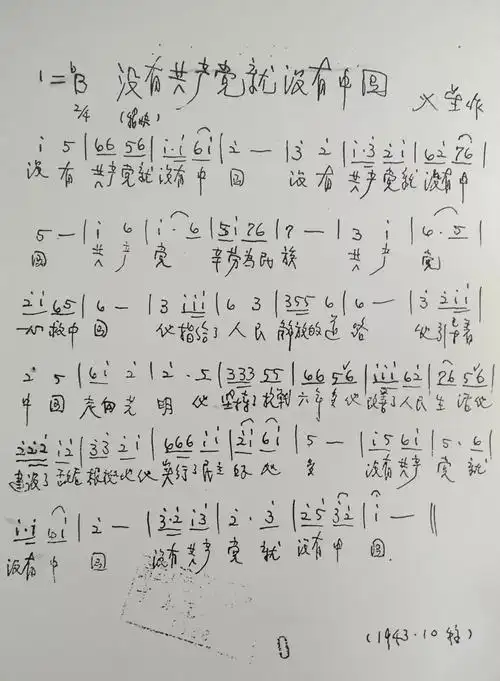 1=ᵇB 没有共产党就没有中国
2/4 (稍快) 作
i 5 | 66 56 | i·i 6i | 2 — | 3 2 | i·3 2i | 62 76 |
没有 共产党就 没有中 国 没有 共产党就 没有中
5 — | i 6 | i· 6 | 5i 76 | 7 — | 3 i | 6· 5 |
国 共产党 辛劳为民族 共产党
2i 65 | 6 — | 3 iii | 6 3 | 355 6 | 6 — | 3 2ii |
一心救中国 他指给了人民 解放的道路 他引导着
2 5 | 6i 2 | 2· 5 | 333 55 | 66 56 | iii 62 | 76 56 |
中国走向光明 他坚持了抗战六年多 他改善了人民生活 他
222 i2 | 33 2i | 666 ii | 2i 6i | 5 — | i5 6i | 5· 6 |
建设了敌后根据地 他实行了民主好处多 没有共产党就
i·i 6i | 2 — | 3·2 i3 | 2· 3 | 25 32 | i — ‖
没有中国 没有共产党就没有中国.
(1943·10 )